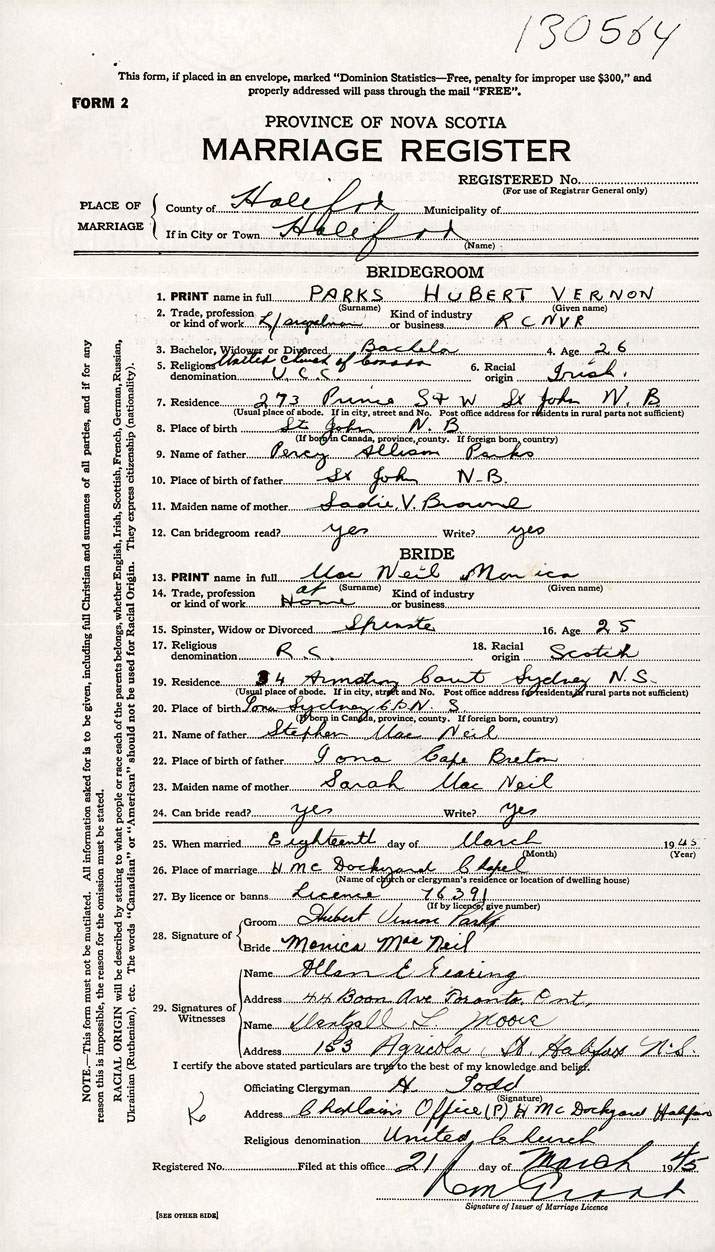 130564
This form, if placed in an envelope, marked "Dominion Statistics—Free, penalty for improper use $300," and
properly addressed will pass through the mail "FREE".
FORM 2
PROVINCE OF NOVA SCOTIA
MARRIAGE REGISTER
REGISTERED No.
(For use of Registrar General only)
PLACE OF MARRIAGE
County of Halifax Municipality of
If in City or Town Halifax
(Name)
BRIDEGROOM
1. PRINT name in full PARKS HUBERT VERNON
(Surname) (Given name)
2. Trade, profession or kind of work L/ Kind of industry or business R C N V R
3. Bachelor, Widower or Divorced Bachelor 4. Age 26
5. Religious denomination United Church of Canada U. C. C 6. Racial origin Irish.
7. Residence 273 Prince St W St John N. B
(Usual place of abode. If in city, street and No. Post office address for residents in rural parts not sufficient)
8. Place of birth St John N. B
(If born in Canada, province, county. If foreign born, country)
9. Name of father Percy Allison Parks
10. Place of birth of father St John N-B.
11. Maiden name of mother Sadie V. Browne
12. Can bridegroom read? yes Write? yes
BRIDE
13. PRINT name in full Mac Neil Monica
(Surname) (Given name)
14. Trade, profession or kind of work at Home Kind of industry or business
15. Spinster, Widow or Divorced Spinster 16. Age 25
17. Religious denomination R. C. 18. Racial origin Scotch
19. Residence 34 Armstrong Court Sydney N. S.
(Usual place of abode. If in city, street and No. Post office address for residents in rural parts not sufficient)
20. Place of birth Iona Sydney C B N. S.
(If born in Canada, province, county. If foreign born, country)
21. Name of father Stephen Mac Neil
22. Place of birth of father Iona Cape Breton
23. Maiden name of mother Sarah Mac Neil
24. Can bride read? yes Write? yes
25. When married Eighteenth day of March 1945
(Month) (Year)
26. Place of marriage H M C Dockyard Chapel
(Name of church or clergyman's residence or location of dwelling house)
27. By licence or banns Licence 76391
(If by licence, give number)
28. Signature of
Groom Hubert Vernon Parks
Bride Monica MacNeil
29. Signatures of Witnesses
Name Allan E Gearing
Address 44 Boon Ave Toronto. Ont,
Name L. Moore
Address 153 Agricola St Halifax N.S.
I certify the above stated particulars are true to the best of my knowledge and belief.
Officiating Clergyman H Todd
(Signature)
Address Chaplain's Office (P) H M C Dockyard Halifax
Religious denomination United Church
Registered No. Filed at this office 21 day of March 1945
Signature of Issuer of Marriage Licence
[SEE OTHER SIDE]
NOTE.—This form must not be mutilated. All information asked for is to be given, including full Christian and surnames of all parties, and if for any
reason this is impossible, the reason for the omission must be stated.
RACIAL ORIGIN will be described by stating to what people or race each of the parents belongs, whether English, Irish, Scottish, French, German, Russian,
Ukrainian (Ruthenian), etc. The words "Canadian" or "American" should not be used for Racial Origin. They express citizenship (nationality).